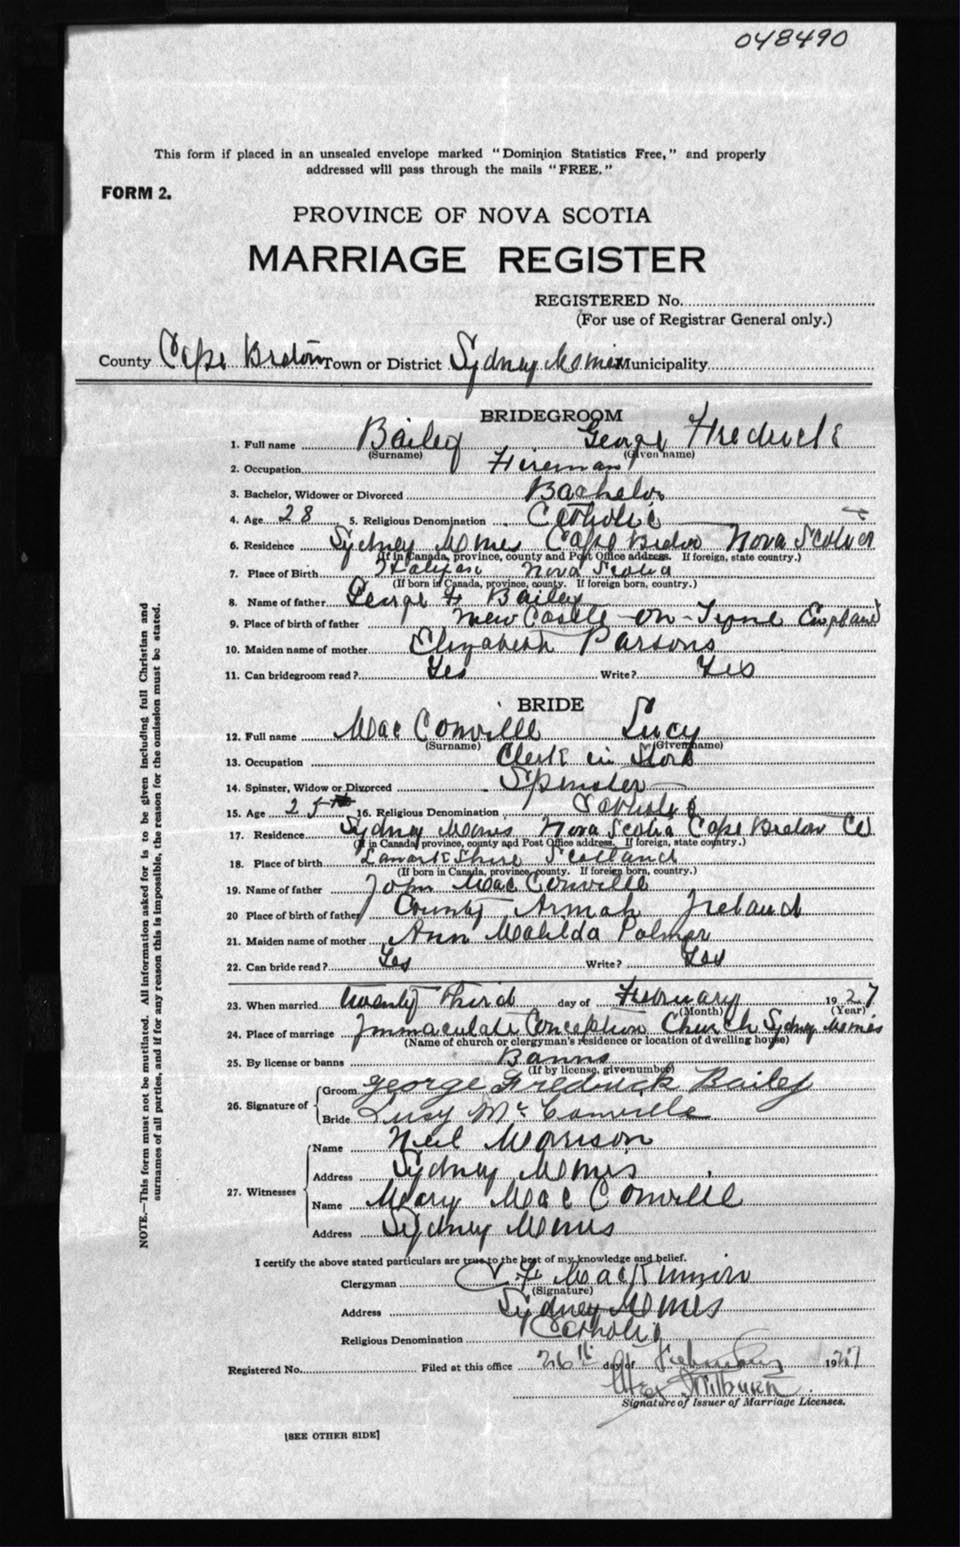 048490
This form if placed in an unsealed envelope marked "Dominion Statistics Free," and properly
addressed will pass through the mails "FREE."
FORM 2.
PROVINCE OF NOVA SCOTIA
MARRIAGE REGISTER
REGISTERED No.
(For use of Registrar General only.)
County Cape Breton Town or District Sydney Mines Municipality
BRIDEGROOM
1. Full name Bailey George Fredrick
(Surname) (Given name)
2. Occupation Fireman
3. Bachelor, Widower or Divorced Bachelor
4. Age 28 5. Religious Denomination Catholic
6. Residence Sydney Mines Cape Breton Nova Scotia
(If in Canada, province, county and Post Office address. If foreign, state country.)
7. Place of Birth Halifax Nova Scotia
(If born in Canada, province, county. If foreign born, country.)
8. Name of father George F Bailey
9. Place of birth of father New Castle-on-Tyne England
10. Maiden name of mother Elizabeth Parsons
11. Can bridegroom read? Yes Write? Yes
BRIDE
12. Full name Mac Conville Lucy
(Surname) (Given name)
13. Occupation Clerk in Store
14. Spinster, Widow or Divorced Spinster
15. Age 25 16. Religious Denomination Catholic
17. Residence Sydney Mines Nova Scotia Cape Breton Co
(If in Canada, province, county and Post Office address. If foreign, state country.)
18. Place of birth Lanark Shire Scotland
(If born in Canada, province, county. If foreign born, country.)
19. Name of father John Mac Conville
20 Place of birth of father County Armah Ireland
21. Maiden name of mother Ann Matilda Palmer
22. Can bride read? Yes Write? Yes
23. When married twenty third day of February 1927
(Month) (Year)
24. Place of marriage Immaculate Conception Church Sydney Mines
(Name of church or clergyman's residence or location of dwelling house)
25. By license or banns Banns
(If by license, give number)
26. Signature of Groom George Fredrick Bailey
Bride Lucy Mc Conville
27. Witnesses Name Neil Morrison
Address Sydney Mines
Name Mary Mac Conville
Address Sydney Mines
I certify the above stated particulars are true to the best of my knowledge and belief.
Clergyman F MacKinnon
(Signature)
Address Sydney Mines
Religious Denomination Catholic
Registered No. Filed at this office 26th day of February 1927
Signature of Issuer of Marriage Licenses.
[SEE OTHER SIDE]
NOTE.—This form must not be mutilated. All information asked for is to be given including full Christian and
surnames of all parties, and if for any reason this is impossible, the reason for the omission must be stated.